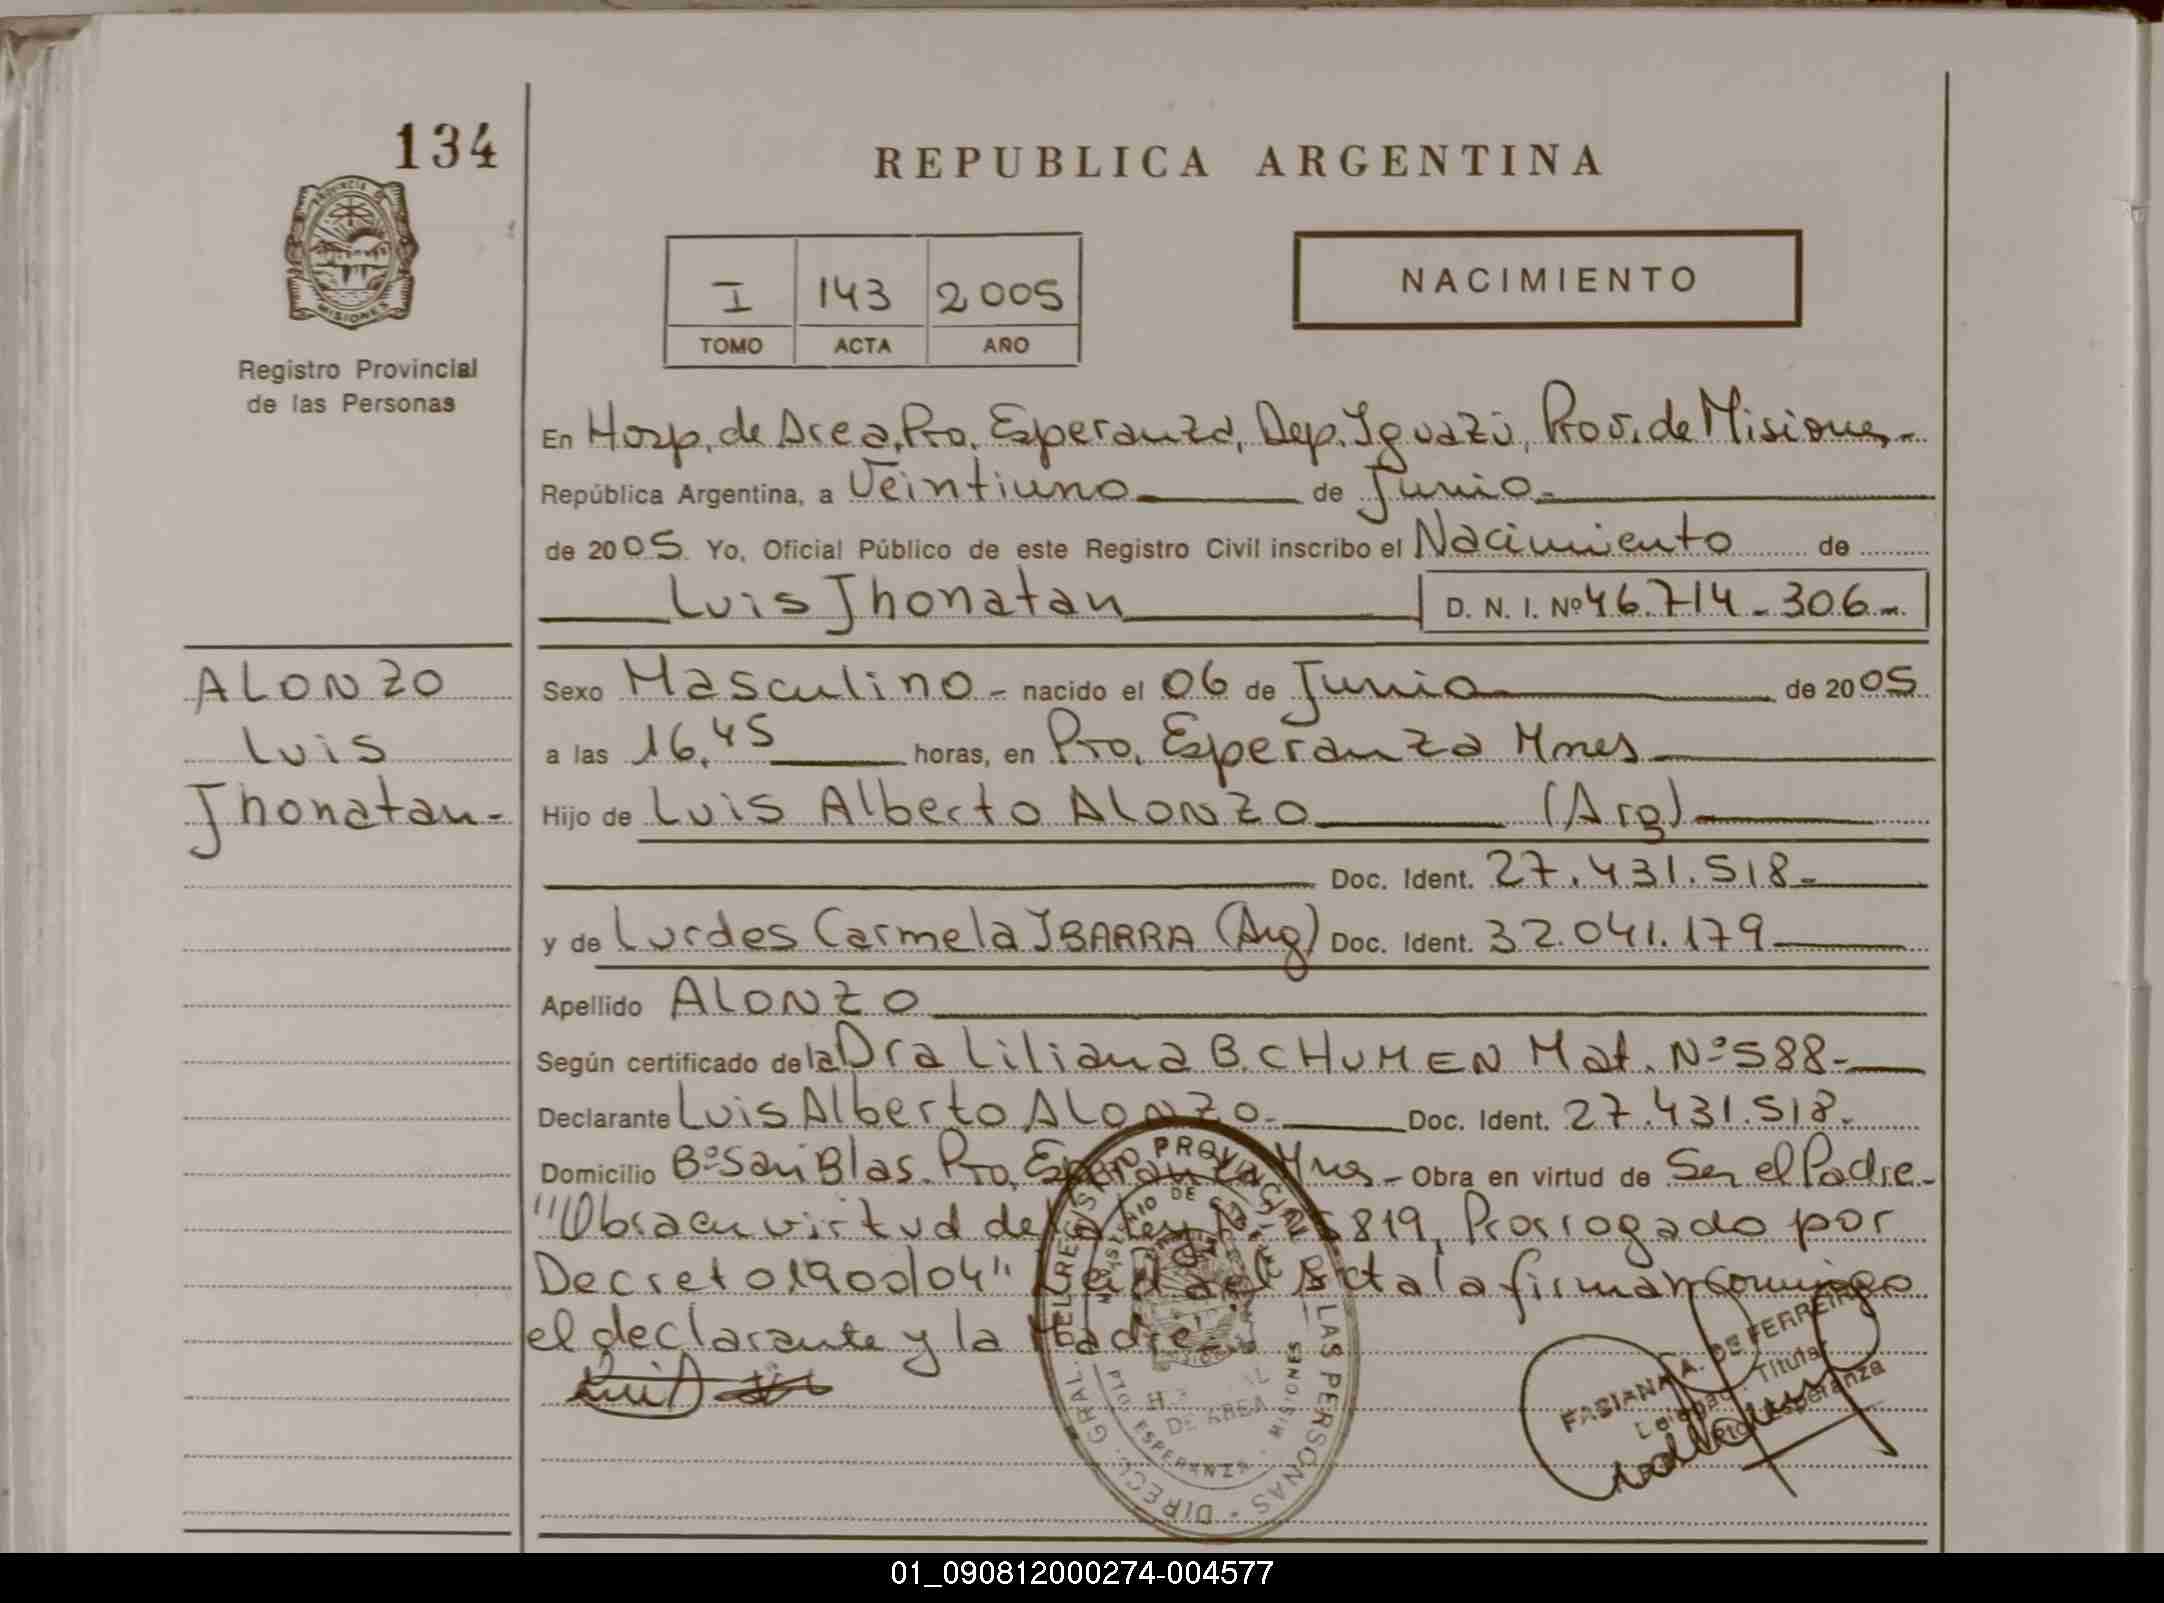 134
REPUBLICA ARGENTINA
PROVINCIA DE MISIONES
NACIMIENTO
I 143 2005
TOMO ACTA AÑO
Registro Provincial
de las Personas
En Hosp. de Area, Pto. Esperanza, Dep. Iguazú, Prov. de Misiones.-
República Argentina, a Veintiuno de Junio.-
de 2005 Yo, Oficial Público de este Registro Civil inscribo el Nacimiento de
Luis Jhonatan D. N. I. Nº 46.714-306-.
ALONZO
Luis
Jhonatan-
Sexo Masculino- nacido el 06 de Junio de 2005
a las 16,45 horas, en Pto. Esperanza Mnes
Hijo de Luis Alberto ALONZO (Arg)
Doc. Ident. 27.431.518-
y de Lurdes Carmela IBARRA (Arg) Doc. Ident. 32.041.179
Apellido ALONZO
Según certificado de la Dra Liliana B. CHUMEN Mat. Nº 588-
Declarante Luis Alberto ALONZO- Doc. Ident. 27.431.518-
Domicilio Bº San Blas. Pto. Esperanza Mnes- Obra en virtud de Ser el Padre.-
"Obra en virtud de la Ley Nº 25819, Prorrogado por
Decreto 1900/04" Leida el Acta la firman conmigo
el declarante y la Madre-
Luis
DIRECC. GRAL. DEL REGISTRO PROVINCIAL DE LAS PERSONAS
MINISTERIO DE
DE AREA
PTO. ESPERANZA - MISIONES
FABIANA A. DE FERREIRA
Delegada Titular
Pto. Esperanza
01_090812000274-004577